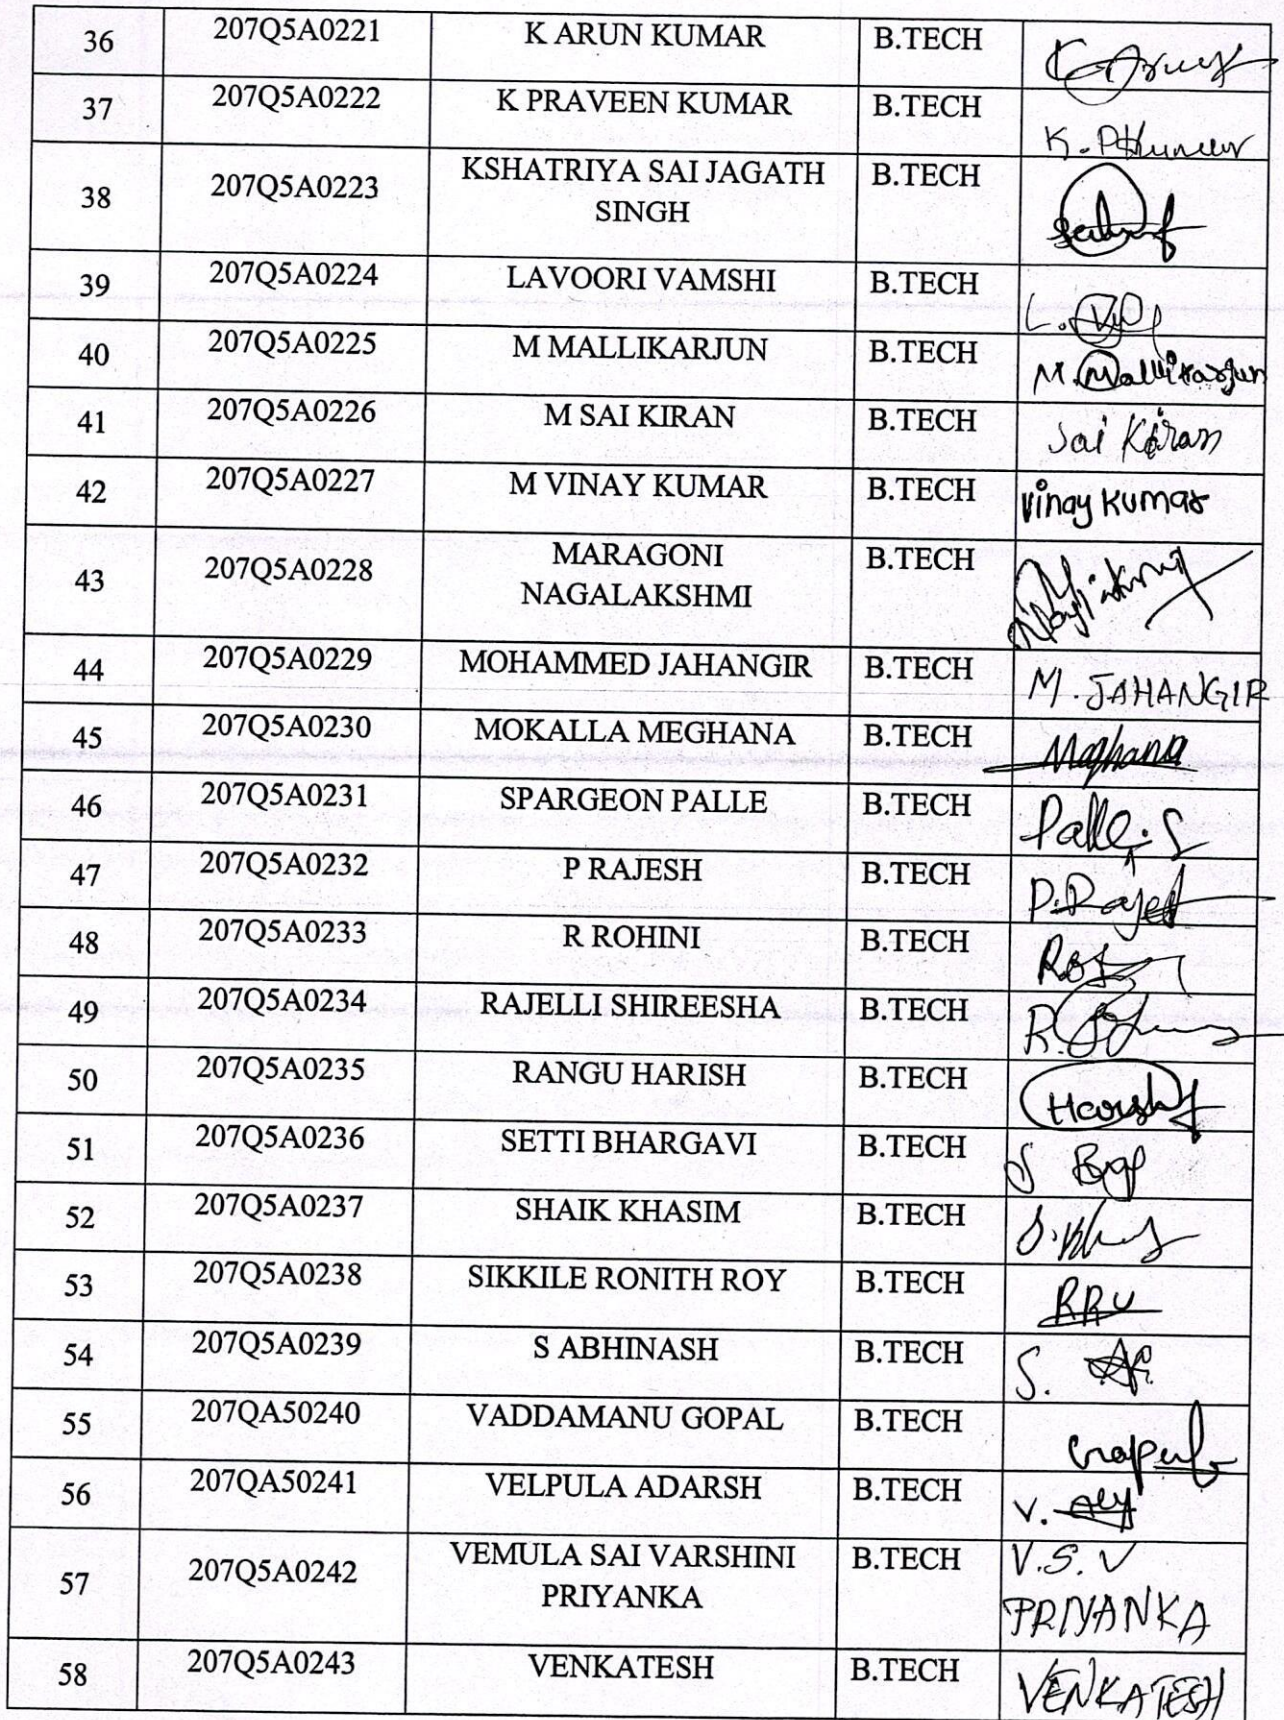 36 207Q5A0221 K ARUN KUMAR B.TECH
37 207Q5A0222 K PRAVEEN KUMAR B.TECH K.
38 207Q5A0223 KSHATRIYA SAI JAGATH B.TECH
SINGH
39 207Q5A0224 LAVOORI VAMSHI B.TECH L.
40 207Q5A0225 M MALLIKARJUN B.TECH M. Mallikarjun
41 207Q5A0226 M SAI KIRAN B.TECH Sai Kiran
42 207Q5A0227 M VINAY KUMAR B.TECH Vinay Kumar
43 207Q5A0228 MARAGONI B.TECH
NAGALAKSHMI
44 207Q5A0229 MOHAMMED JAHANGIR B.TECH M. JAHANGIR
45 207Q5A0230 MOKALLA MEGHANA B.TECH Meghana
46 207Q5A0231 SPARGEON PALLE B.TECH Palle.S
47 207Q5A0232 P RAJESH B.TECH P.Rajesh
48 207Q5A0233 R ROHINI B.TECH
49 207Q5A0234 RAJELLI SHIREESHA B.TECH R.
50 207Q5A0235 RANGU HARISH B.TECH Harish
51 207Q5A0236 SETTI BHARGAVI B.TECH S
52 207Q5A0237 SHAIK KHASIM B.TECH S.
53 207Q5A0238 SIKKILE RONITH ROY B.TECH
54 207Q5A0239 S ABHINASH B.TECH S.
55 207QA50240 VADDAMANU GOPAL B.TECH
56 207QA50241 VELPULA ADARSH B.TECH V.
57 207Q5A0242 VEMULA SAI VARSHINI B.TECH V.S.V
PRIYANKA PRIYANKA
58 207Q5A0243 VENKATESH B.TECH VENKATESH